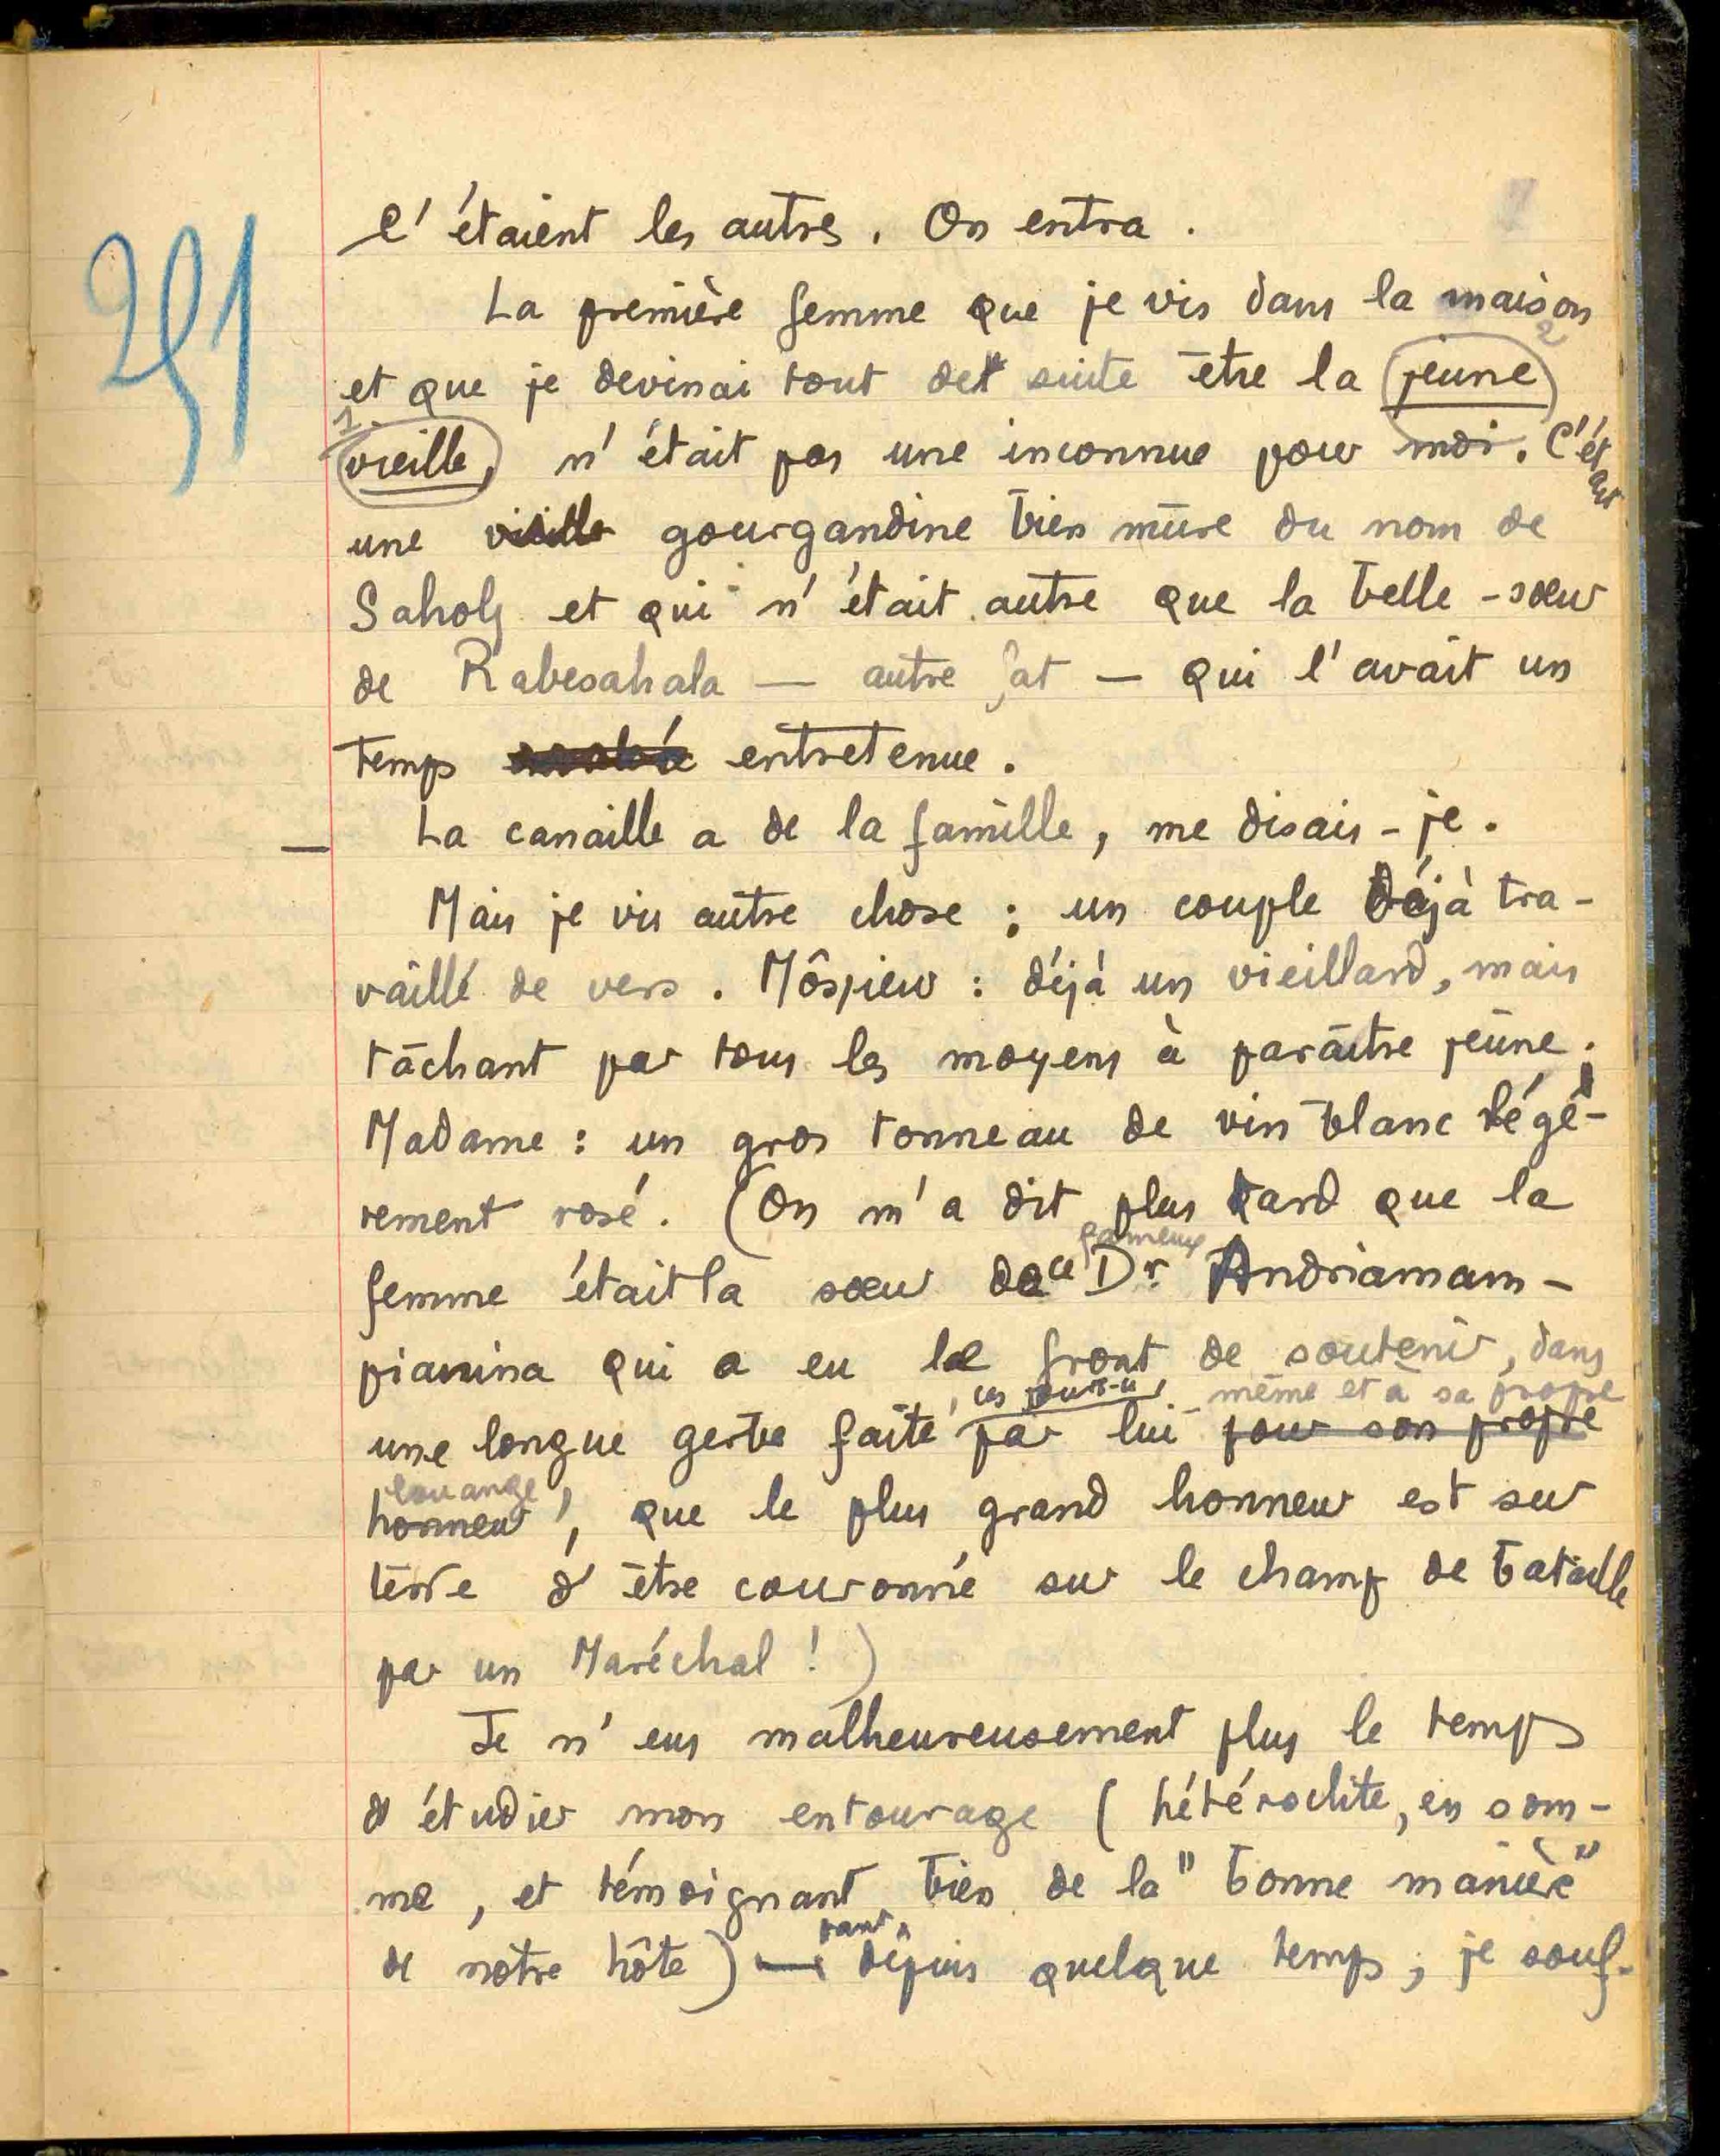 291
C'étaient les autres. On entra.
La première femme que je vis dans la maison
et que je devinai tout de suite être la jeune 2
1 vieille, n'était pas une inconnue pour moi. C'était
une vieille gourgandine bien mûre du nom de
Saholy et qui n'était autre que la belle-sœur
de Rabesahala — autre fat — qui l'avait un
temps entretenue.
— La canaille a de la famille, me disais-je.
Mais je vis autre chose : un couple déjà tra-
vaillé de vers. Môssieur : déjà un vieillard, mais
tâchant par tous les moyens à paraître jeune ;
Madame : un gros tonneau de vin blanc légè-
rement rosé. (On m'a dit plus tard que la
fameux
femme était la sœur de ce Dr. Andriamam-
pianina qui a eu le front de soutenir, dans
, ces jours-ci, même et à sa propre
une longue gerbe faite par lui pour son propre
louange
honneur, que le plus grand honneur est sur
terre d'être couronné sur le champ de bataille
par un Maréchal !)
Je n'eus malheureusement plus le temps
d'étudier mon entourage (hétéroclite, en som-
me, et témoignant bien de la "bonne manière"
de notre hôte) — depuis quelque temps, je souf-